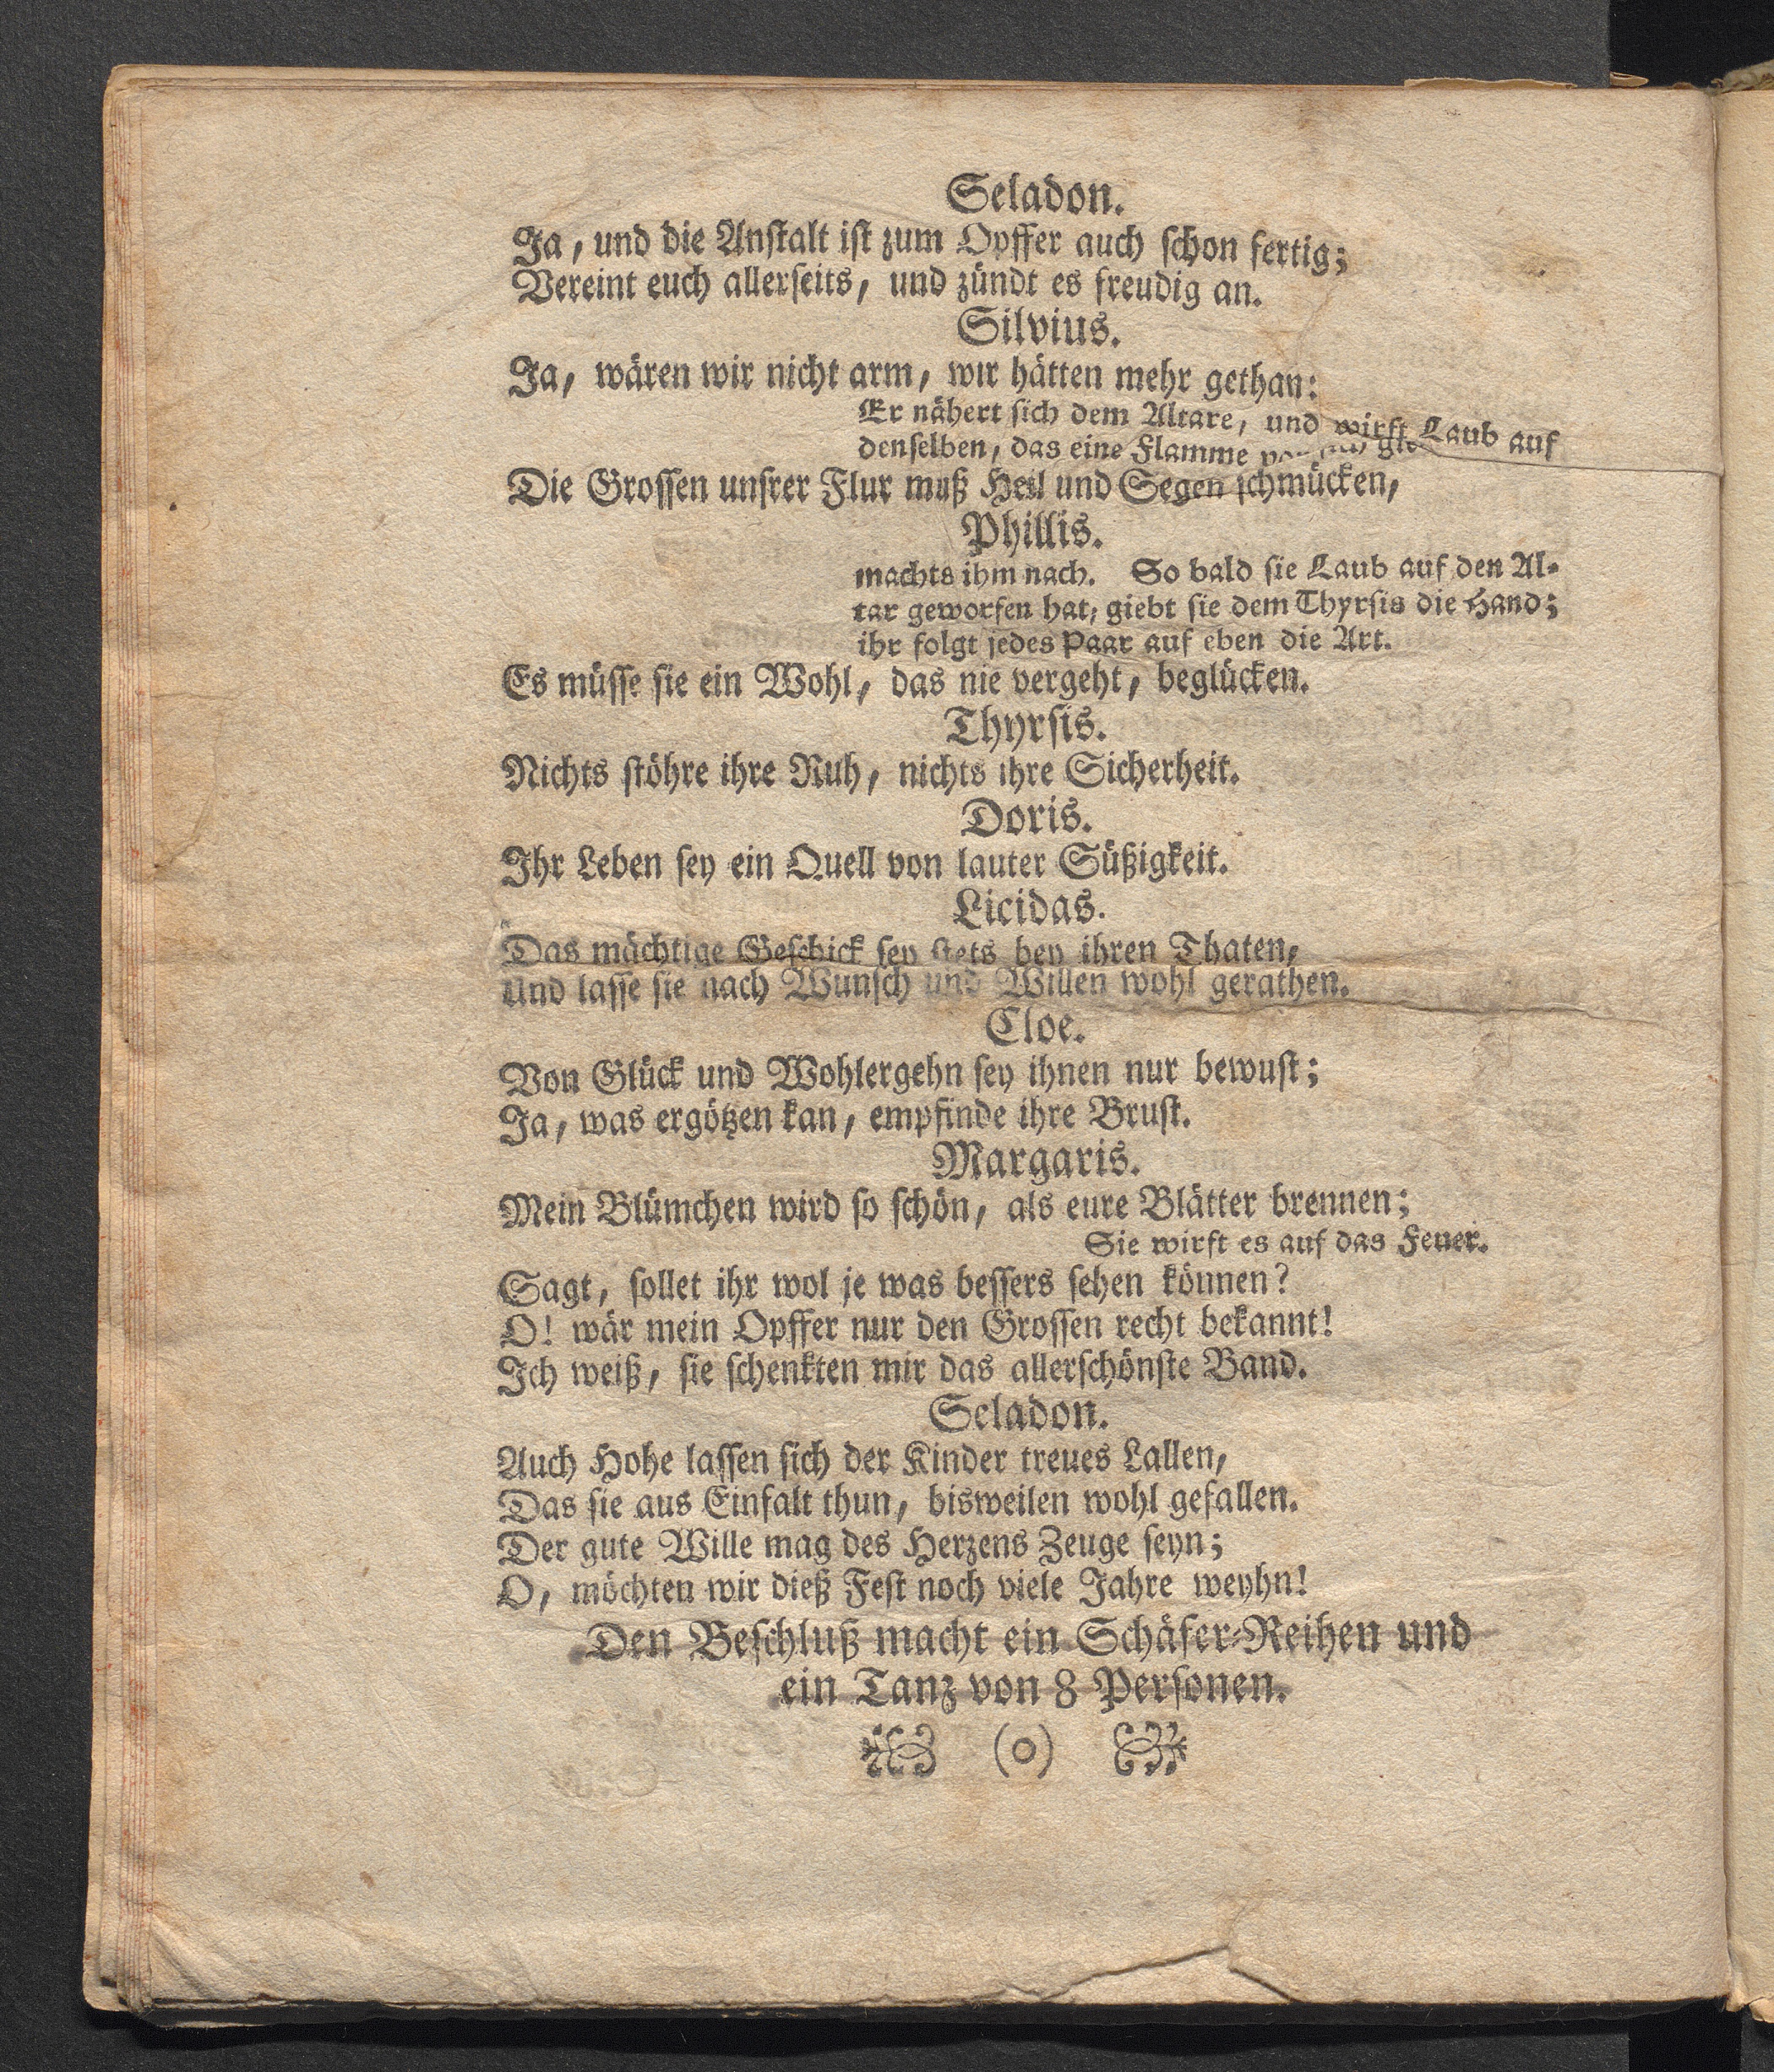 Seladon.
Ja, und die Anstalt ist zum Opffer auch schon fertig;
Vereint euch allerseits, und zündt es freudig an.
Silvius.
Ja, wären wir nicht arm, wir hätten mehr gethan:
Er nähert sich dem Altare, und wirft Laub auf
denselben, das eine Flamme von sich
Die Grossen unsrer Flur muß Heil und Segen schmücken,
Phillis.
machts ihm nach. So bald sie Laub auf den Al-
tar geworfen hat, giebt sie dem Thyrsis die Hand;
ihr folgt jedes Paar auf eben die Art.
Es müsse sie ein Wohl, das nie vergeht, beglücken.
Thyrsis.
Nichts stöhre ihre Ruh, nichts ihre Sicherheit.
Doris.
Ihr Leben sey ein Quell von lauter Süßigkeit.
Licidas.
Das mächtige Geschick sey stets bey ihren Thaten,
Und lasse sie nach Wunsch und Willen wohl gerathen.
Cloe.
Von Glück und Wohlergehn sey ihnen nur bewust;
Ja, was ergötzen kan, empfinde ihre Brust.
Margaris.
Mein Blümchen wird so schön, als eure Blätter brennen;
Sie wirft es auf das Feuer.
Sagt, sollet ihr wol je was bessers sehen können?
O! wär mein Opffer nur den Grossen recht bekannt!
Ich weiß, sie schenkten mir das allerschönste Band.
Seladon.
Auch Hohe lassen sich der Kinder treues Lallen,
Das sie aus Einfalt thun, bisweilen wohl gefallen.
Der gute Wille mag des Herzens Zeuge seyn;
O, möchten wir dieß Fest noch viele Jahre weyhn!
Den Beschluß macht ein Schäfer-Reihen und
ein Tanz von 8 Personen.
(o)